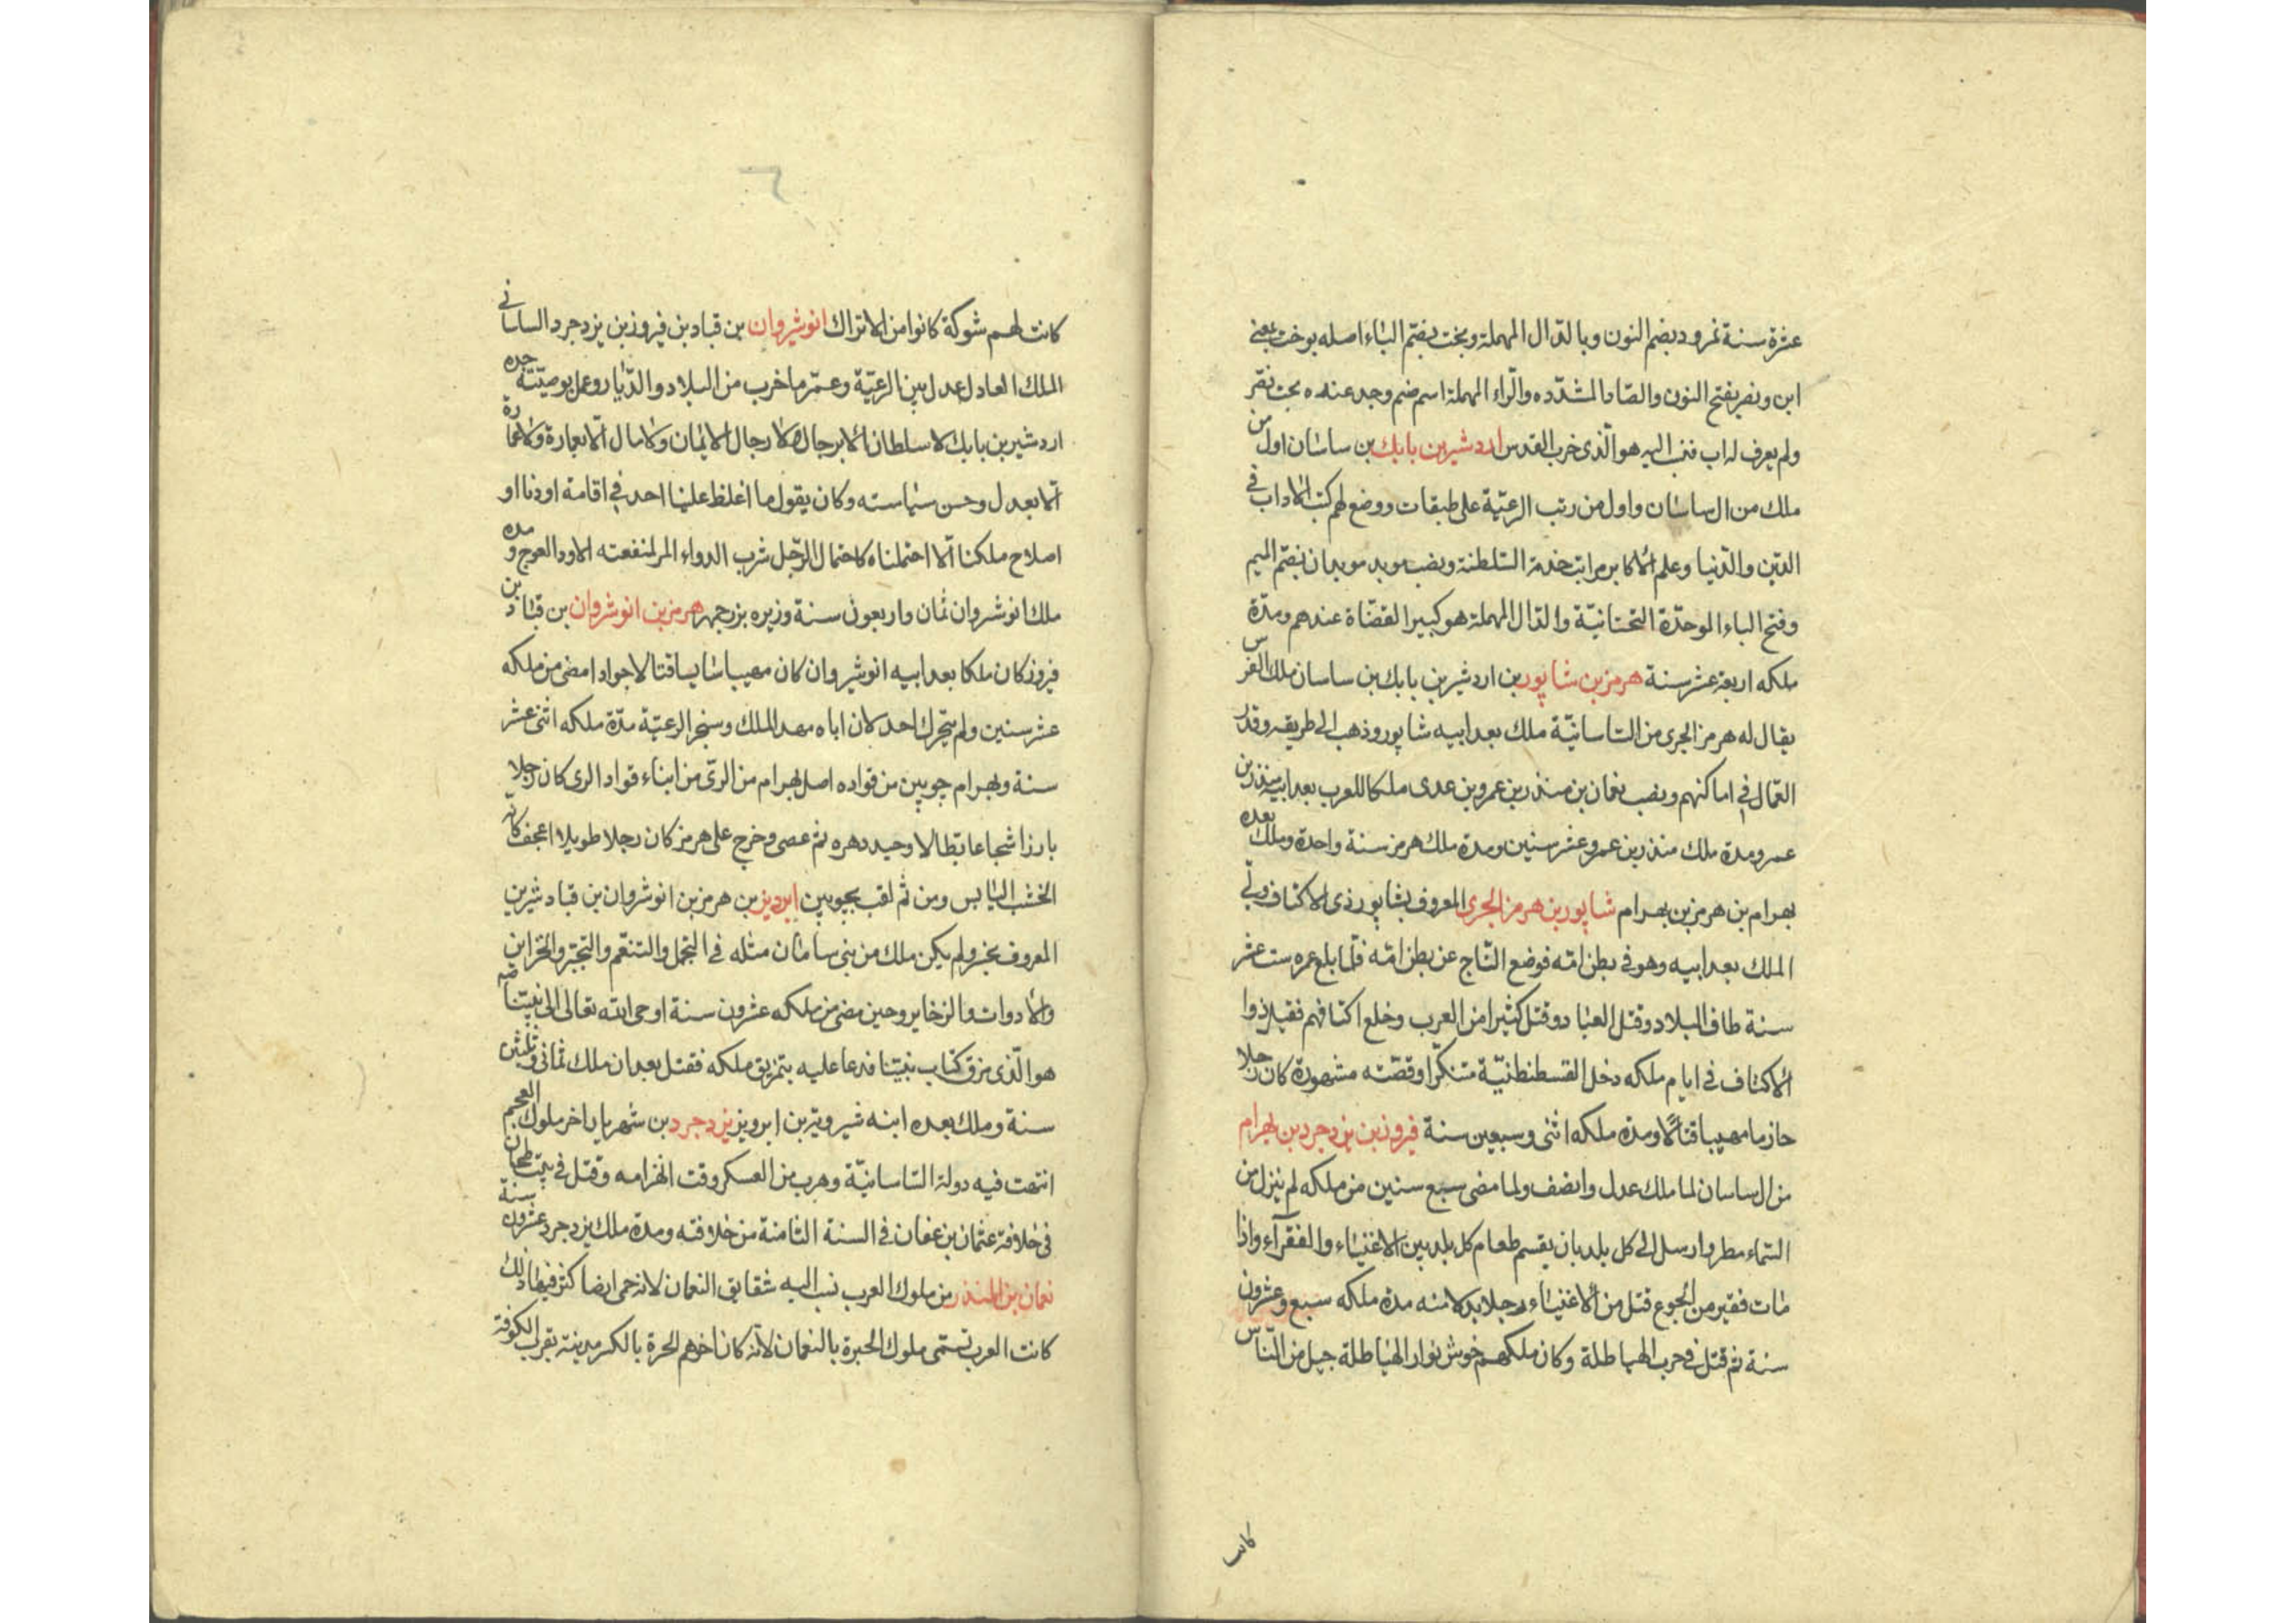 عشرة سنة نمرود بضم النون وبالدّال المهملة وبخت بضمّ الباء اصله بوخت بمعنى
ابن ونصر بفتح النون والصّاد المشدّده والرّاء المهملة اسم ضم وجد عنده بخت نصّر
ولم يعرف له اب فنسب اليه هو الّذى خرب القدس اردشير بن بابك بن ساسان اول من
ملك من ال ساسان واول من رتب الرعيّة على طبقات ووضع لهم كتب الاداب في
الدّين والدّنيا وعلم الاكابر مراتب خدمة السّلطنة ونصب موبد موبدان بضمّ الميم
وفتح الباء الموحدّة التحتانيّة والدّال المهملة هو كبير القضّاة عندهم ومدّة
ملكه اربعة عشر سنة هرمز بن شاپور بن اردشير بن بابك بن ساسان ملك الفرس
يقال له هرمز الجرى من السّاسانيّة ملك بعد ابيه شاپور وذهب الى طريقه وقدر
العمّال في اماكنهم ونصب نعمان بن منذر بن عمرو بن عدى ملكا للعرب بعد ابيه منذر بن
عمرو مدة ملك منذر بن عمرو عشر سنين ومدة ملك هرمز سنة واحدة وملك بعده
بهرام بن هرمز بن بهرام شاپور بن هرمز الجرى المعروف بشاپور ذى الاكتاف ولّي
الملك بعد ابيه وهو في بطن امّه فوضع التّاج عن بطن امّه فلمّا بلغ عمره ست عشر
سنة طاف البلاد وقتل العباد وقتل كثيرا من العرب وخلع اكتافهم فقيل ذوا
الاكتاف في ايام ملكه دخل القسطنطنيّة متنكّرا وقصّته مشهورة كان رجلا
حازما مهيبا قتالا ومدة ملكه اثنى وسبعين سنة فيروز بن يزدجرد بن بهرام
من ال ساسان لما ملك عدل وانصف ولما مضى سبع سنين من ملكه لم ينزل من
السّماء مطر وارسل الى كل بلد بان يقسم طعام كل بلد بين الاغنياء والفقرآء واذا
مات فقير من الجوع قتل من الاغنياء رجلا بدلا منه مدة ملكه سبع وعشرون
سنة ثم قتل في حرب الهياطلة وكان ملكهم خوش نواز الهياطلة جيل من النّاس
كانت
كانت لهم شوكة كانوا من الاتراك انوشيروان بن قباد بن فيروز بن يزدجرد الساسانى
الملك العادل عدل بين الرعيّة وعمّر ما خرب من البلاد والدّيار وعمل بوصيّة جده
اردشير بن بابك لا سلطان الا برجال ولا رجال الا بمال ولا مال الّا بعمارة ولا عمارة
الّا بعدل وحسن سياسته وكان يقول ما اغلظ علينا احد في اقامة اودنا او
اصلاح ملكنا الّا احتملناه كاحتمال الرّجل شرب الدواء المر لمنفعته الاود العوج ومده
ملك انوشروان ثمان واربعون سنة وزيره بزرجمهر هرمز بن انوشروان بن قباد بن
فيروز كان ملكا بعد ابيه انوشيروان كان مهيبا سايسا قتالا جوادا مضى من ملكه
عشر سنين ولم يتحرك احد لان اباه مهد الملك وسخر الرعيّة مدّة ملكه اثنى عشر
سنة وبهرام چوبين من قواده اصل بهرام من الرىّ من ابناء قواد الرى كان رجلا
بارزا شجاعا بطالا وحيد دهره ثم عصى وخرج على هرمز كان رجلا طويلا اعجف كانّه
الخشب اليابس ومن ثم لقب بچوبين ابرويز بن هرمز بن انوشروان بن قباد شيرين
المعروف بخسرو لم يكن ملك من بنى ساسان مثله في التجمل والتنعّم والتجبّر والخزاين
والادوات والزخاير وحين مضى من ملكه عشرون سنة اوحى الله تعالى الى نبيّنا صم
هو الّذى مزق كتاب نبيّنا فدعا عليه بتمزيق ملكه فقتل بعد ان ملك ثمانى وثلثين
سنة وملك بعده ابنه شيرويّة بن ابرويز يزدجرد بن شهريار اخر ملوك العجم
انتهت فيه دولة السّاسانيّة وهرب من العسكر وقت انهزامه وقتل في بيت طحان
فى خلافة عثمان بن عفان فى السنة الثامنة من خلافته ومدة ملك يزدجرد عشرون سنة
نعمان بن المنذر من ملوك العرب نسب اليه شقايق النعمان لانه حمى ارضا كثر فيها ذلك
كانت العرب تسمّى ملوك الحيرة بالنعمان لانّه كان اخرهم الحرة بالكسر مدينة بقرب الكوفة